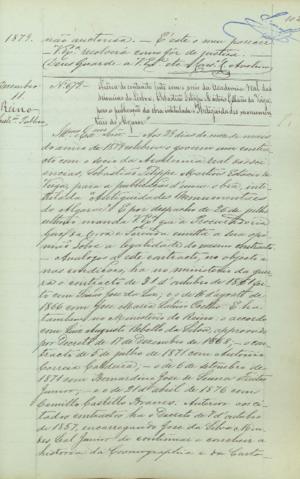 1879.
não auctorisa. — É este o meu parecer
V. Exª resolverá como fôr de justiça.
Deus Guarde a V. Exª etc
Dezembro
11
Reino
Nº 672 — contracto feito com o socio da Academia Real das
Sciencias de Lisboa, Sebastião Philippe Martins Estacio da Veiga,
para a publicação da obra intitulada Antiguidades monumentaes
do Algarve.
Exmo Snr. — Aos 28 dias do mez de maio
do anno de 1879 celebrou o governo um contracto
com o socio da Academia real das sciencias,
Sebastião Philippe Martins Estacio da
Veiga, para a publicação d'uma obra, intitulada
"Antiguidades Monumentaes
do Algarve". E por despacho de 20 de julho
ultimo manda V. Exª que a Procuradoria
Geral da Corôa e Fazenda emitta a sua opinião
sobre a legalidade do mesmo contracto.
— Analogos a este contracto, no objecto e
nas condições, ha no ministerio da guerra
o contracto de 31 d'outubro de
com Simão José da Luz; o de 16 d'agosto de
1866 com José Maria Latino Coelho. E ha
tambem, no Ministerio do Reino, o accordo
com Luiz Augusto Rebello da Silva, approvado
por Decreto de 17 de Dezembro de 1868; — o contracto
de 5 de julho de 1871 com Antonio
Correia Caldeira; — o de 6 de setembro de
1871 com Bernardino José de Senna Freitas
Junior; — e o de 1º d'abril de 1876 com
Camillo Castello Branco. Anterior aos citados
contractos ha o Decreto de 7 d'outubro
de 1857, encarregando José da Silva Mendes
Leal Junior de continuar e concluir a
historia da Cosmographia e da Carto-